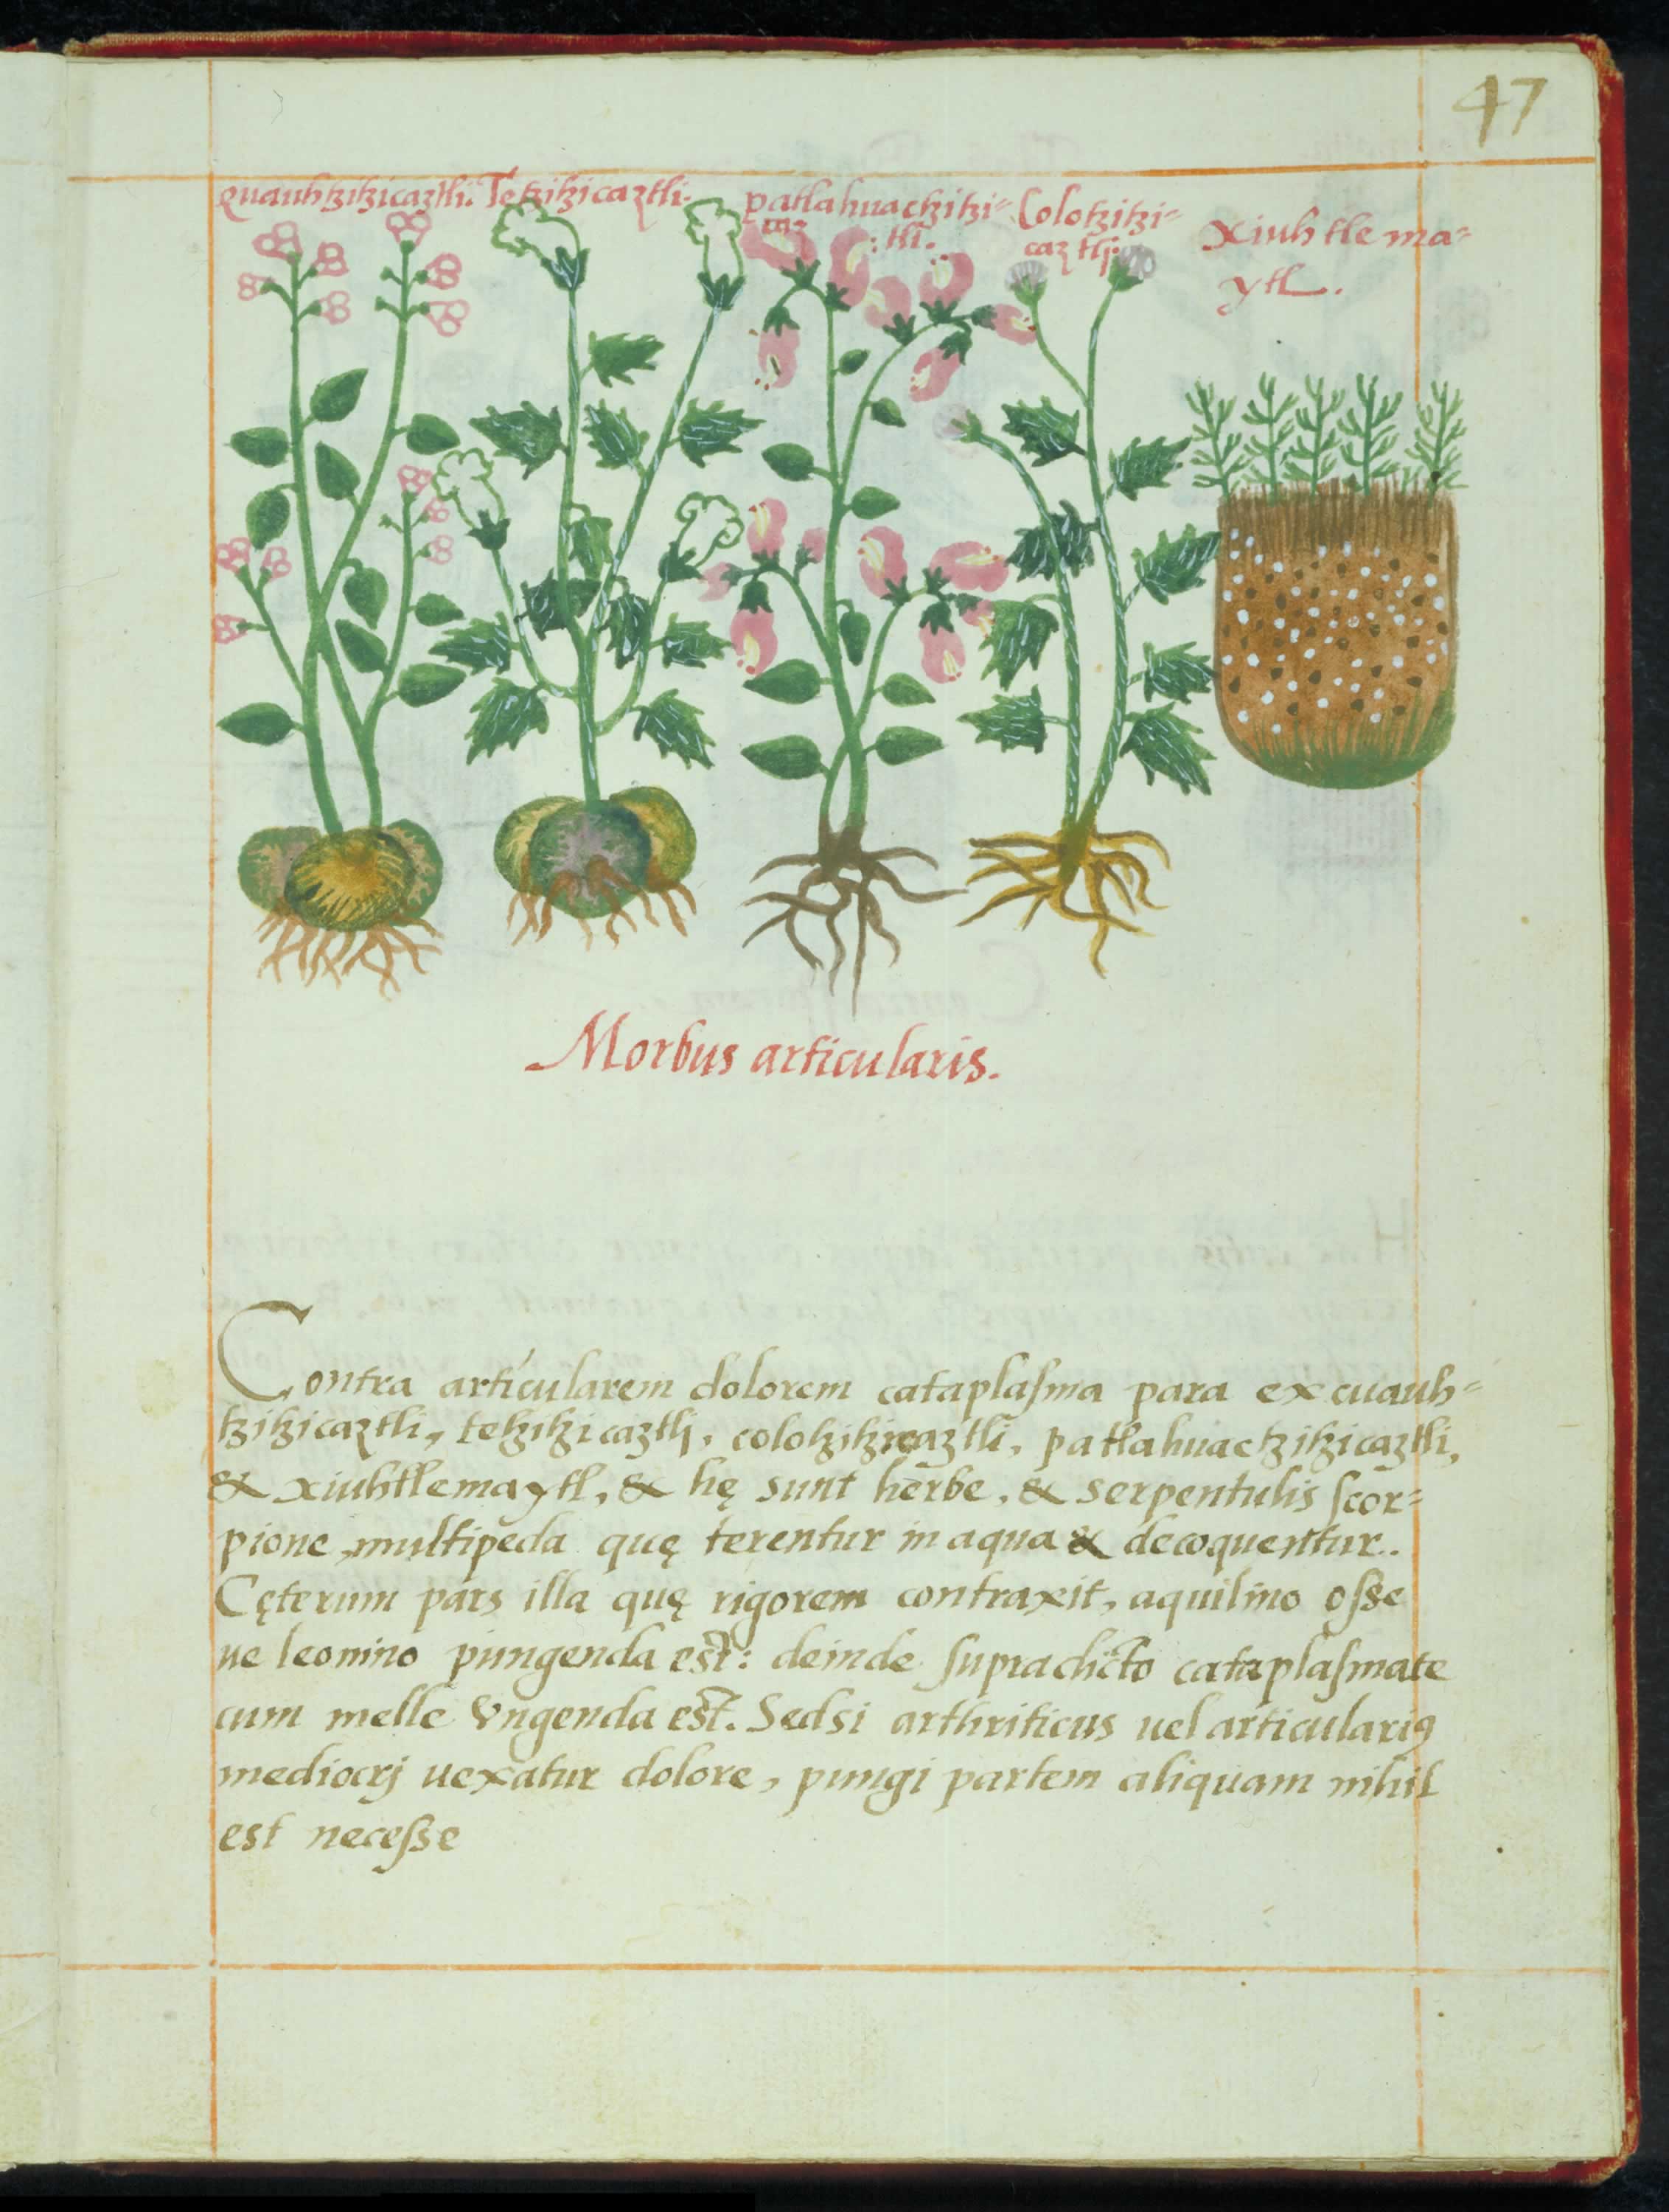 47
quauhtzitzicaztli. Tetzitzicaztli. patlahuactzitzi= Colotzitzi= xiuhtlema=
caz :tli. caztli. ytl.
Morbus articularis.
Contra artícularem dolorem cataplaſma para ex cuauh=
tzitzicaztli, tetzitzicaztlj, colotzitzicaztli, patlahuactzitzicaztli,
& xiuhtlemaytl, & hę sunt herbe, & serpentulis ſcor=
pione, multipeda quę terentur in aqua & decoquentur.
Cęterum pars illa quę rigorem contraxit, aquilino oſse
ue leonino pungenda est: deinde ſupradicto cataplaſmate
cum melle vngenda est. Sed si arthriticus uel articularis
mediocrj uexatur dolore, pungi partem aliquam nihil
est neceſse